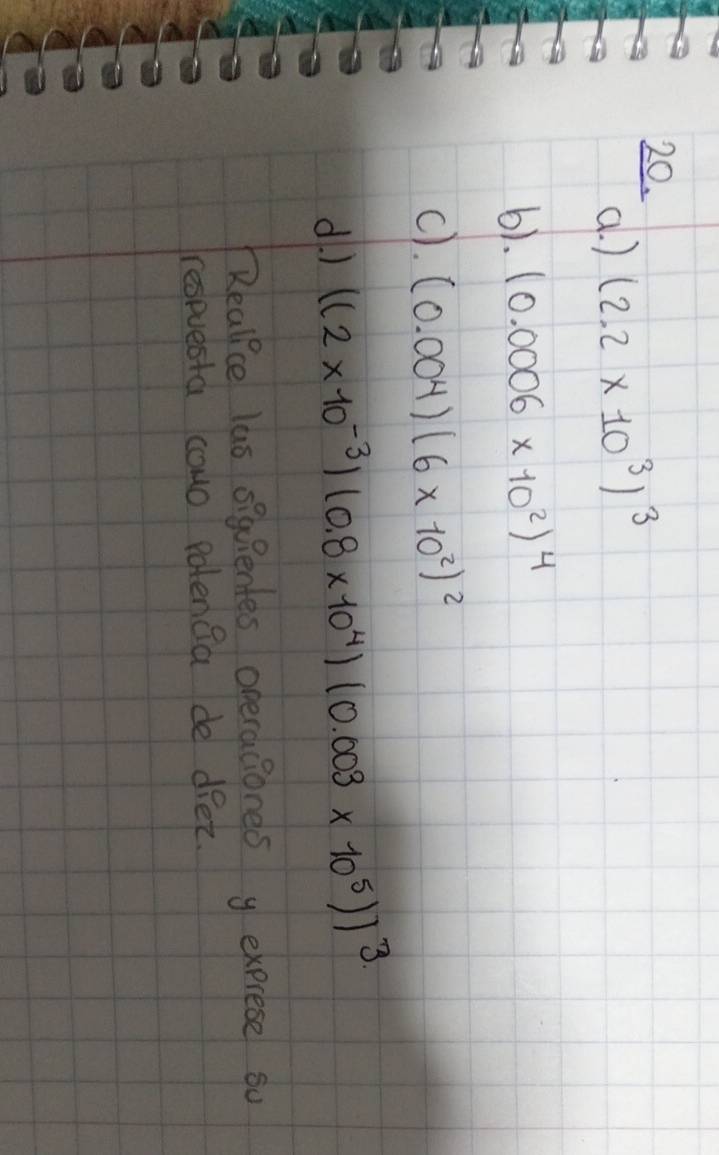 20.
a.) (2.2 × 10³)³
b). (0.0006 × 10²)⁴
c). (0.004) (6 × 10²)²
d.) ((2 × 10⁻³) (0.8 × 10⁴) (0.003 × 10⁵))³.
Realice las siguientes operaciones y exprese su
respuesta como potencia de diez.